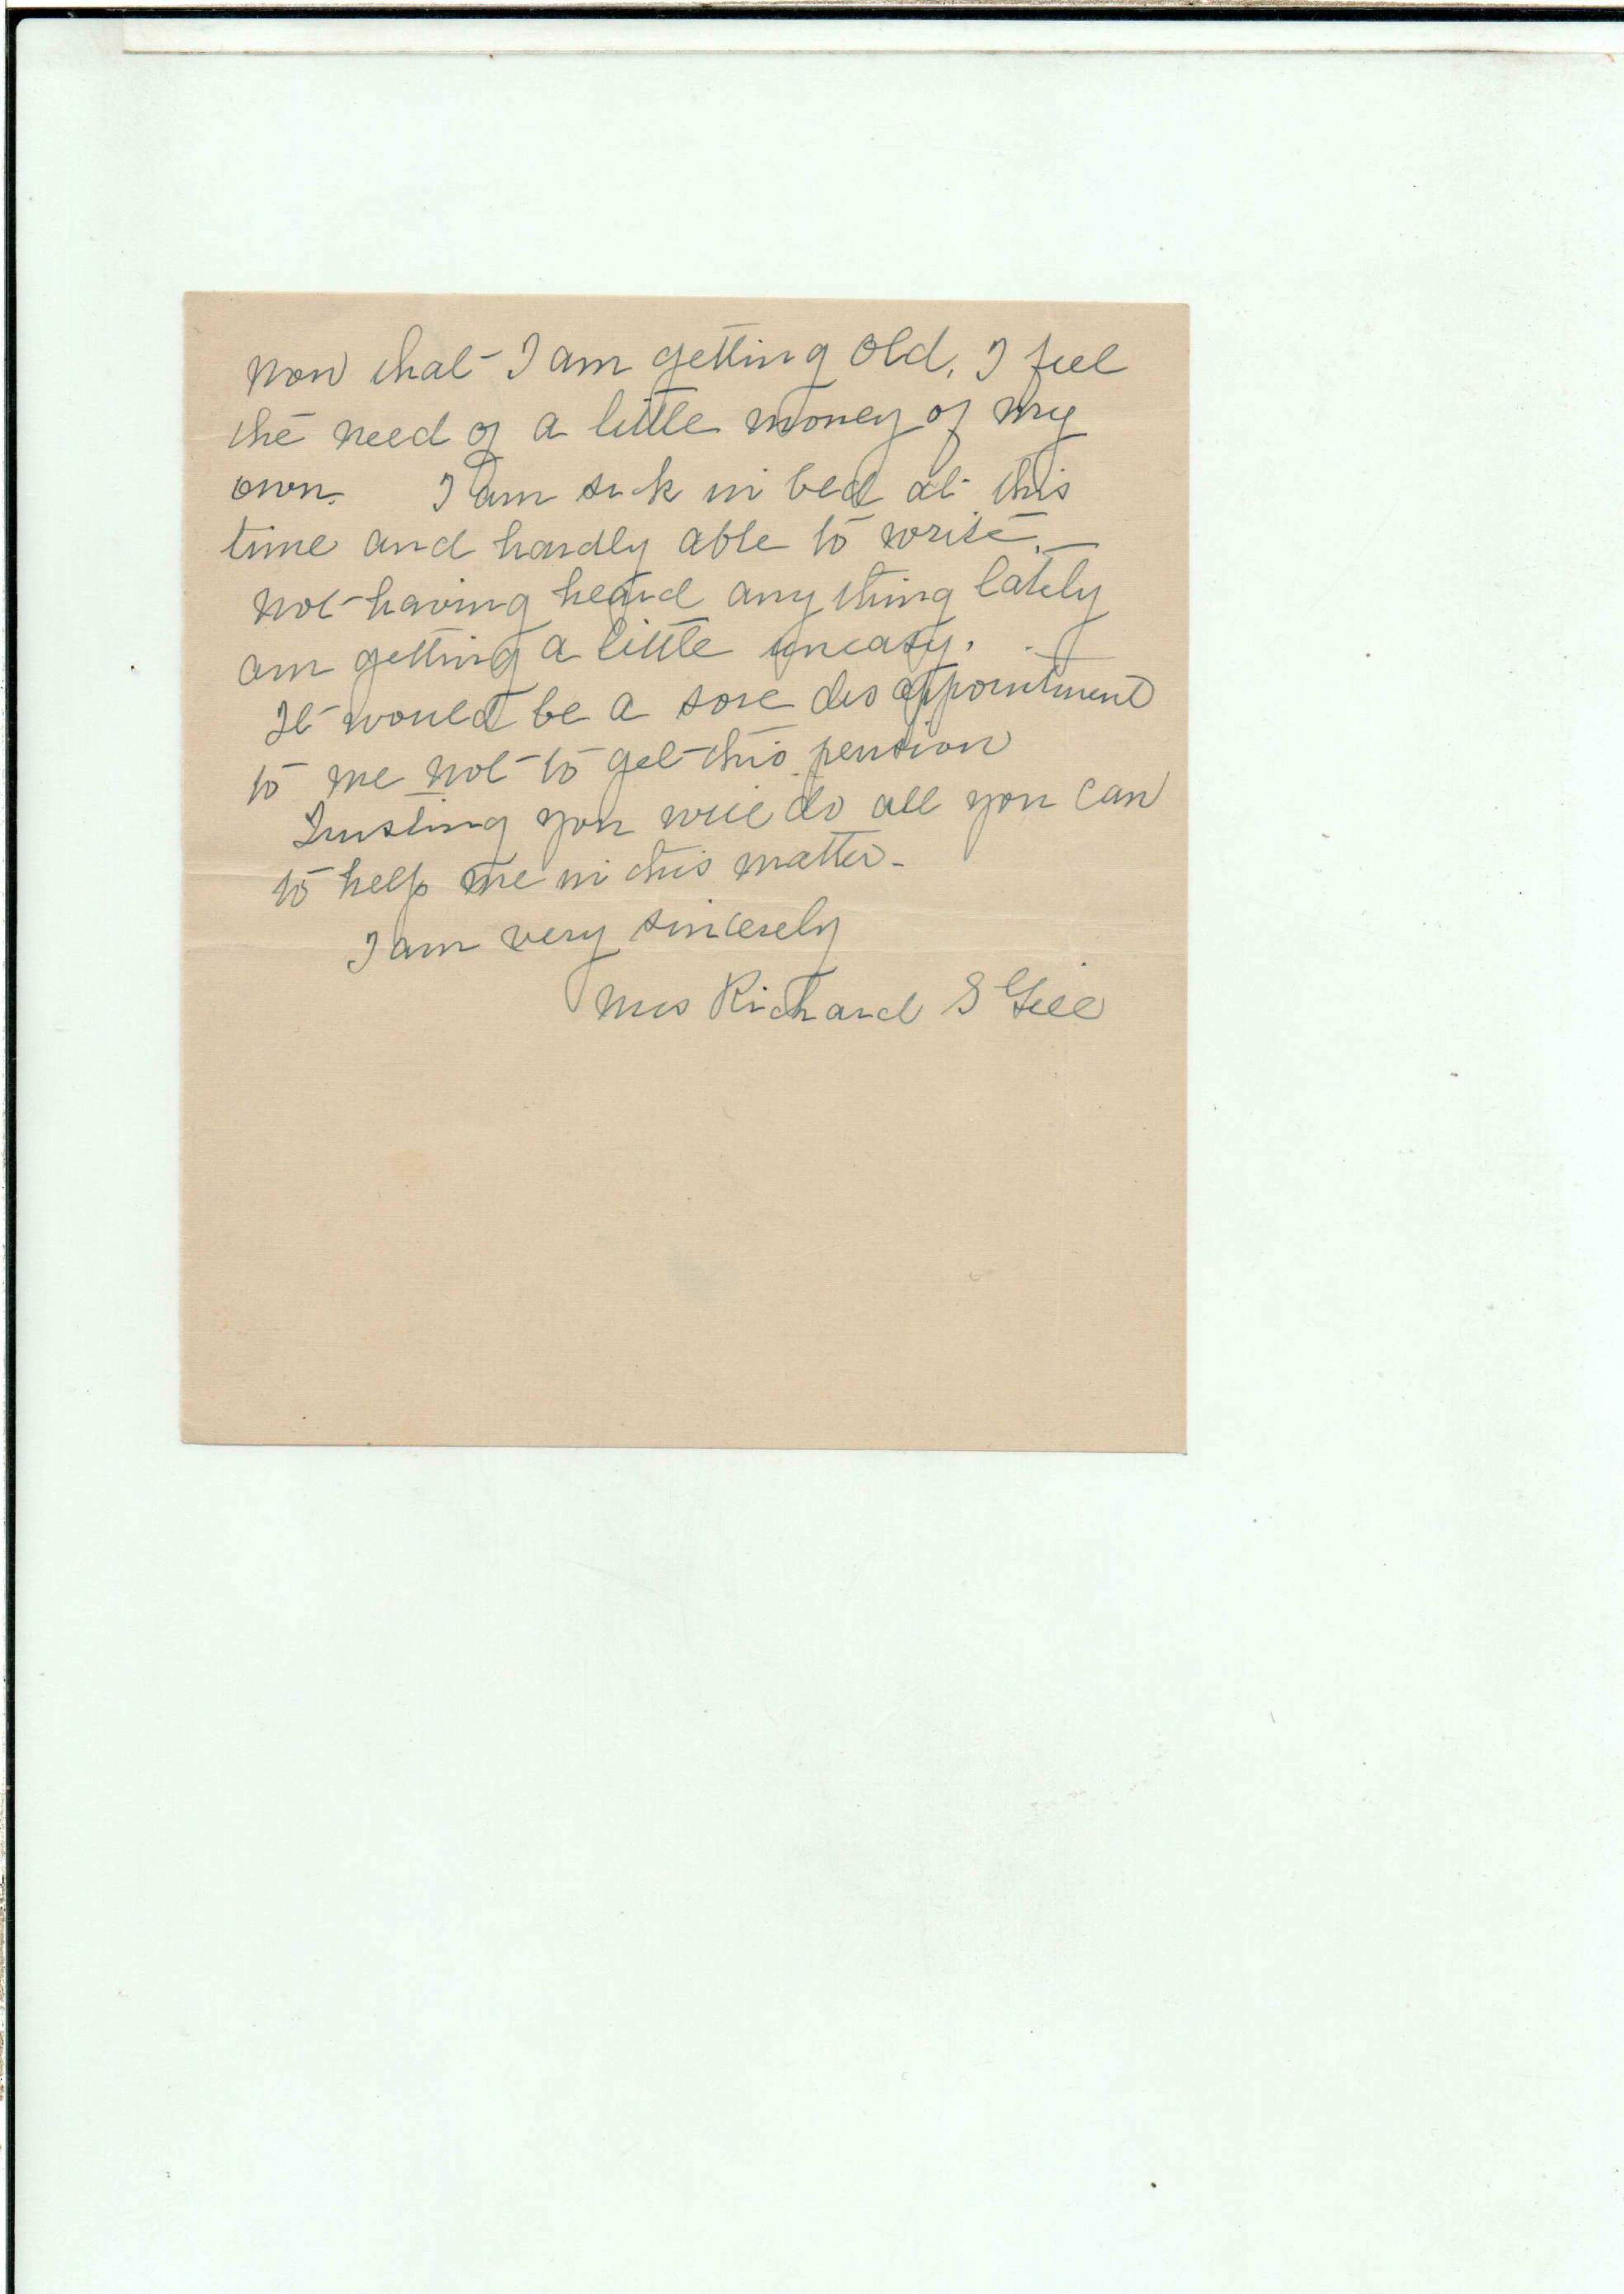 Now that I am getting old, I feel
the need of a little money of my
own. I am sick in bed at this
time and hardly able to write.
Not having heard any thing lately
am getting a little uneasy.
It would be a sore disappointment
to me not to get this pension
Trusting you will do all you can
to help me in this matter.
I am very sincerely
Mrs Richard S Gill